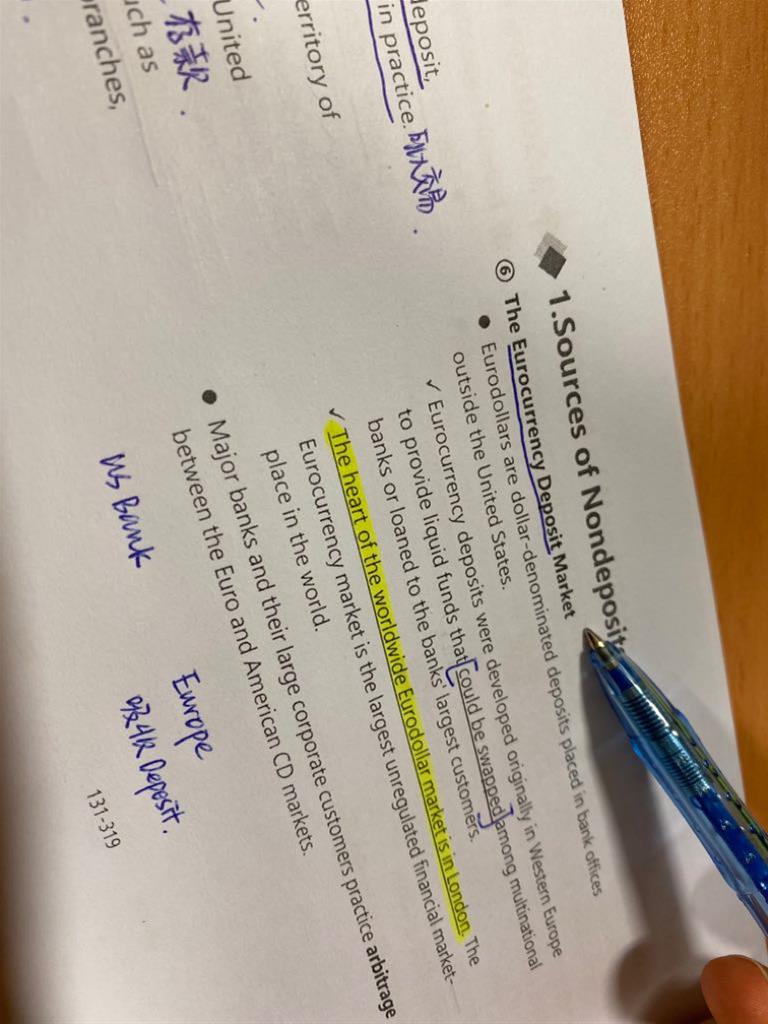 deposit,
in practice.
erritory of
United
uch as
存款.
ranches,
1.Sources of Nondeposit
⑥ The Eurocurrency Deposit Market
● Eurodollars are dollar-denominated deposits placed in bank offices
outside the United States.
✓ Eurocurrency deposits were developed originally in Western Europe
to provide liquid funds that [could be swapped] among multinational
banks or loaned to the banks' largest customers.
✓ The heart of the worldwide Eurodollar market is in London. The
Eurocurrency market is the largest unregulated financial market-
place in the world.
● Major banks and their large corporate customers practice arbitrage
between the Euro and American CD markets.
Bank
Europe
吸收 Deposit.
131-319